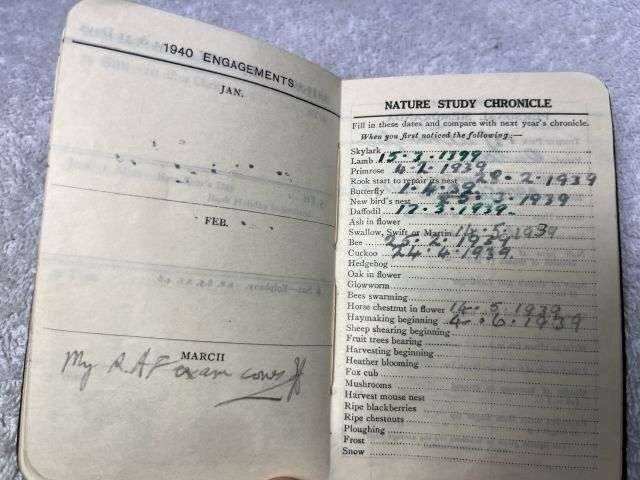 1940 ENGAGEMENTS
JAN.
FEB.
MARCH
My R.A.F exam comes
NATURE STUDY CHRONICLE
Fill in these dates and compare with next year's chronicle.
When you first noticed the following:—
Skylark
Lamb 15.3.1999
Primrose 4.2.1939
Rook start to repair its nest 28.2.1939
Butterfly
New bird's nest 3.1939
Daffodil 12.3.1939
Ash in flower
Swallow, Swift or Martin 14.5.1939
Bee 25.2.1939
Cuckoo 24.4.1939.
Hedgehog
Oak in flower
Glowworm
Bees swarming
Horse chestnut in flower 14.5.1939
Haymaking beginning 4.6.1939
Sheep shearing beginning
Fruit trees bearing
Harvesting beginning
Heather blooming
Fox cub
Mushrooms
Harvest mouse nest
Ripe blackberries
Ripe chestnuts
Ploughing
Frost
Snow